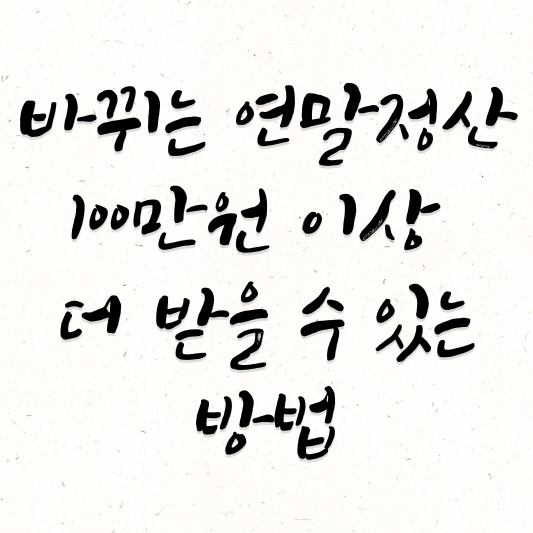 바뀌는 연말정산
100만원 이상
더 받을 수 있는
방법